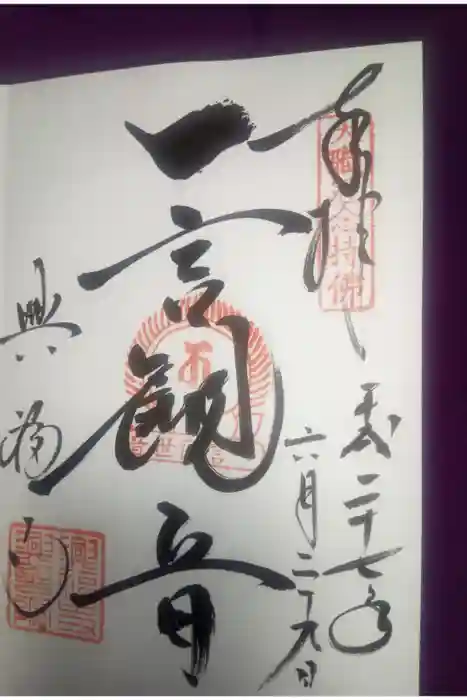 奉拝
平成二十七年
六月二十九日
一言観音
興福寺